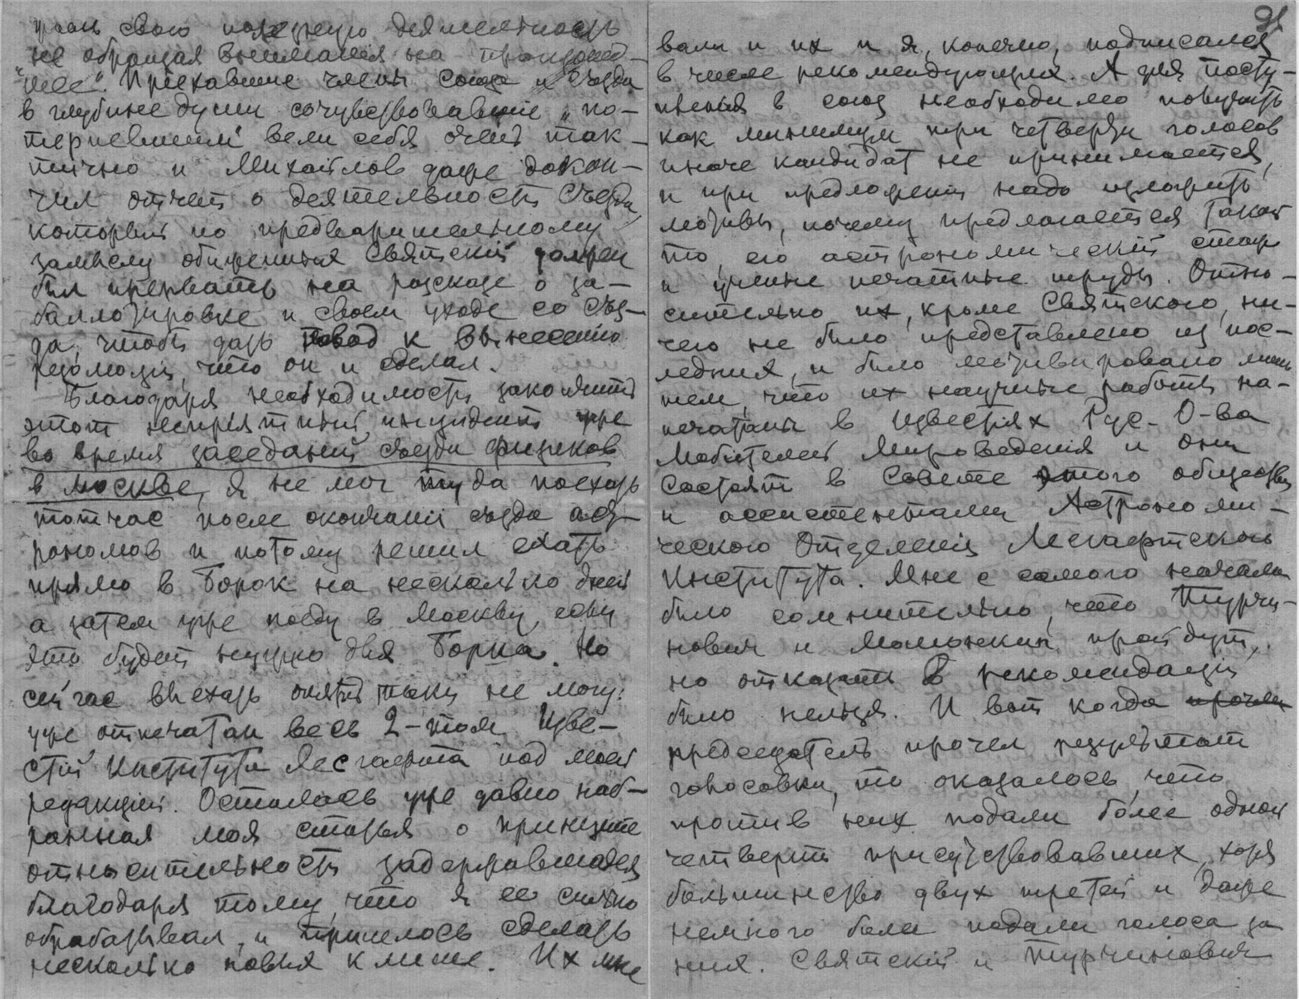 свою полезную деятельность
не обращая внимания на происшед-
шее". Приехавшие члены союза и съезда
в глубине души сочувствовавшие „по-
терпевшим" вели себя очень так-
тично и Михайлов даже докон-
чил отчет о деятельности Съезда,
который по предварительному
замыслу обиженных Святский должен
был прервать на рассказе о за-
баллотировке и своем уходе со Съез-
да, чтобы дать повод к вынесению
резолюции, что он и сделал.
Благодаря необходимости закончить
этот неприятный инцидент уже
во время заседаний съезда физиков
в Москве, я не мог туда поехать
тотчас после окончания съезда аст-
рономов и потому решил ехать
прямо в Борок на несколько дней
а затем уже поеду в Москву, если
это будет нужно для Борка. Но
сейчас выехать опять таки не могу:
уже отпечатан весь 2-том Изве-
стий Института Лесгафта под моей
редакцией. Осталась уже давно наб-
ранная моя статья о принципе
относительности задержавшаяся
благодаря тому, что я ее сильно
обрабатывал, и пришлось сделать
несколько новых клише. Их мне
91
вали и их и я, конечно, подписался
в числе рекомендующих. А для посту-
пления в союз необходимо получить
как минимум три четверти голосов
иначе кандидат не принимается,
и при предложении надо изложить
мотивы, почему предлагается такой
то, его астрономический стаж
и ученые печатные труды. Относ-
ительно их, кроме Святского, ни-
чего не было представлено из пос-
ледних, и было мотивировано лишь
тем, что их научные работы на-
печатаны в Известиях Рус. О-ва
Любителей Мироведения и они
состоят в Совете этого общества
и ассистентами Астрономи-
ческого Отделения Лесгафтского
Института. Мне с самого начала
было сомнительно, что Турчи-
нович и Малинский пройдут,
но отказать в рекомендации
было нельзя. И вот когда прочел
председатель прочел результат
голосовки, то оказалось, что
против них подали более одной
четверти присутствовавших, хотя
большинство двух третей и даже
немного более подали голоса за
них. Святский и Турчинович